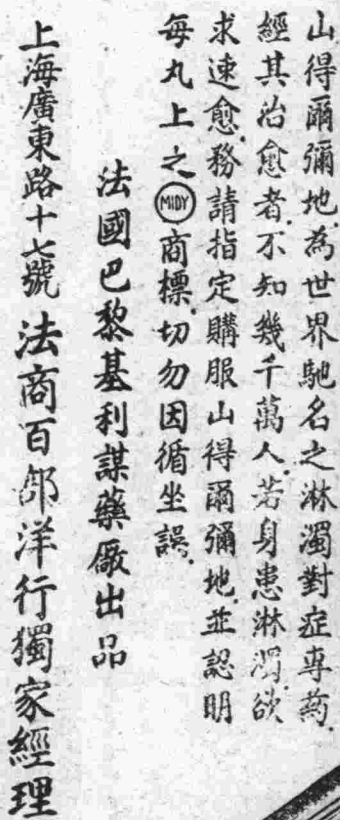 山得爾彌地.為世界馳名之淋濁對症專药.
經其治愈者.不知幾千萬人.若身患淋濁.欲
求速愈.務請指定購服山得爾彌地.並認明
每丸上之MIDY商標.切勿因循坐誤.
法國巴黎基利謀藥廠出品
上海廣東路十七號 法商百部洋行獨家經理